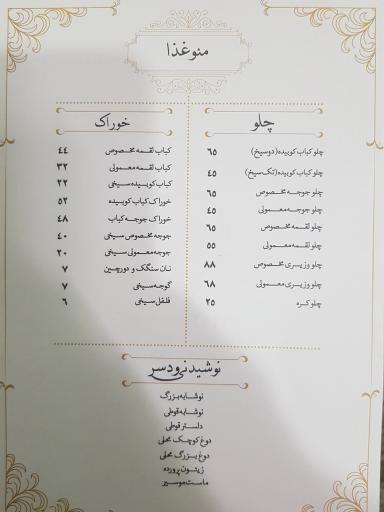 منو غذا
چلو
چلو کباب کوبیده (دو سیخ) ۶۵
چلو کباب کوبیده (تک سیخ) ۴۵
چلو جوجه مخصوص ۶۵
چلو جوجه معمولی ۴۵
چلو لقمه مخصوص ۶۵
چلو لقمه معمولی ۵۵
چلو وزیری مخصوص ۸۸
چلو وزیری معمولی ۶۸
چلو کره ۲۵
خوراک
کباب لقمه مخصوص ۴۴
کباب لقمه معمولی ۳۲
کباب کوبیده سیخی ۲۲
خوراک کباب کوبیده ۵۲
خوراک جوجه کباب ۴۸
جوجه مخصوص سیخی ۴۰
جوجه معمولی سیخی ۲۰
نان سنگک و دورچین ۷
گوجه سیخی ۷
فلفل سیخی ۶
نوشیدنی و دسر
نوشابه بزرگ
نوشابه قوطی
دلستر قوطی
دوغ کوچک محلی
دوغ بزرگ محلی
زیتون پرورده
ماست موسیر